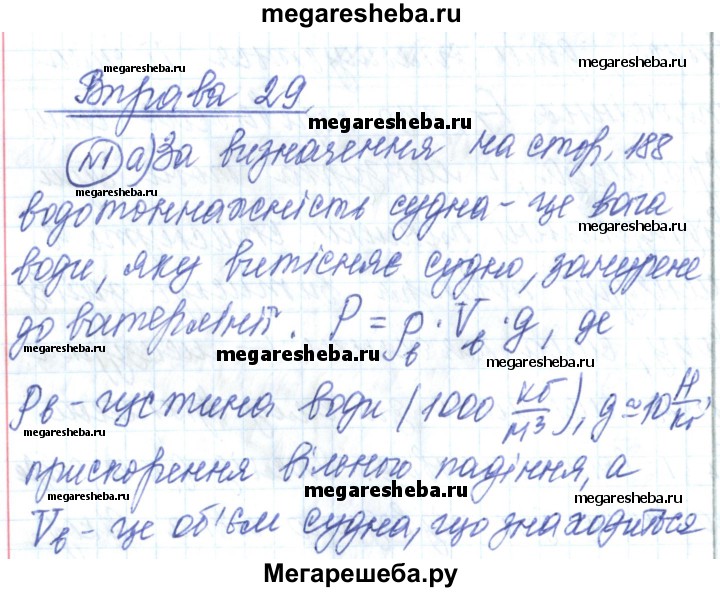 megaresheba.ru
megaresheba.ru
megaresheba.ru
Вправа 29
megaresheba.ru
№1 а) За визначення на стор. 188
megaresheba.ru
водотоннажність судна - це вага
megaresheba.ru
води, яку витісняє судно, занурене
до ватерлінії. P = ρв · Vв · g, де
megaresheba.ru
megaresheba.ru
megaresheba.ru
ρв - густина води (1000 кг/м3), g ≃ 10 Н/кг,
megaresheba.ru
megaresheba.ru
прискорення вільного падіння, а
megaresheba.ru
megaresheba.ru
Vв - це об'єм судна, що знаходиться
megaresheba.ru
Мегарешеба.ру